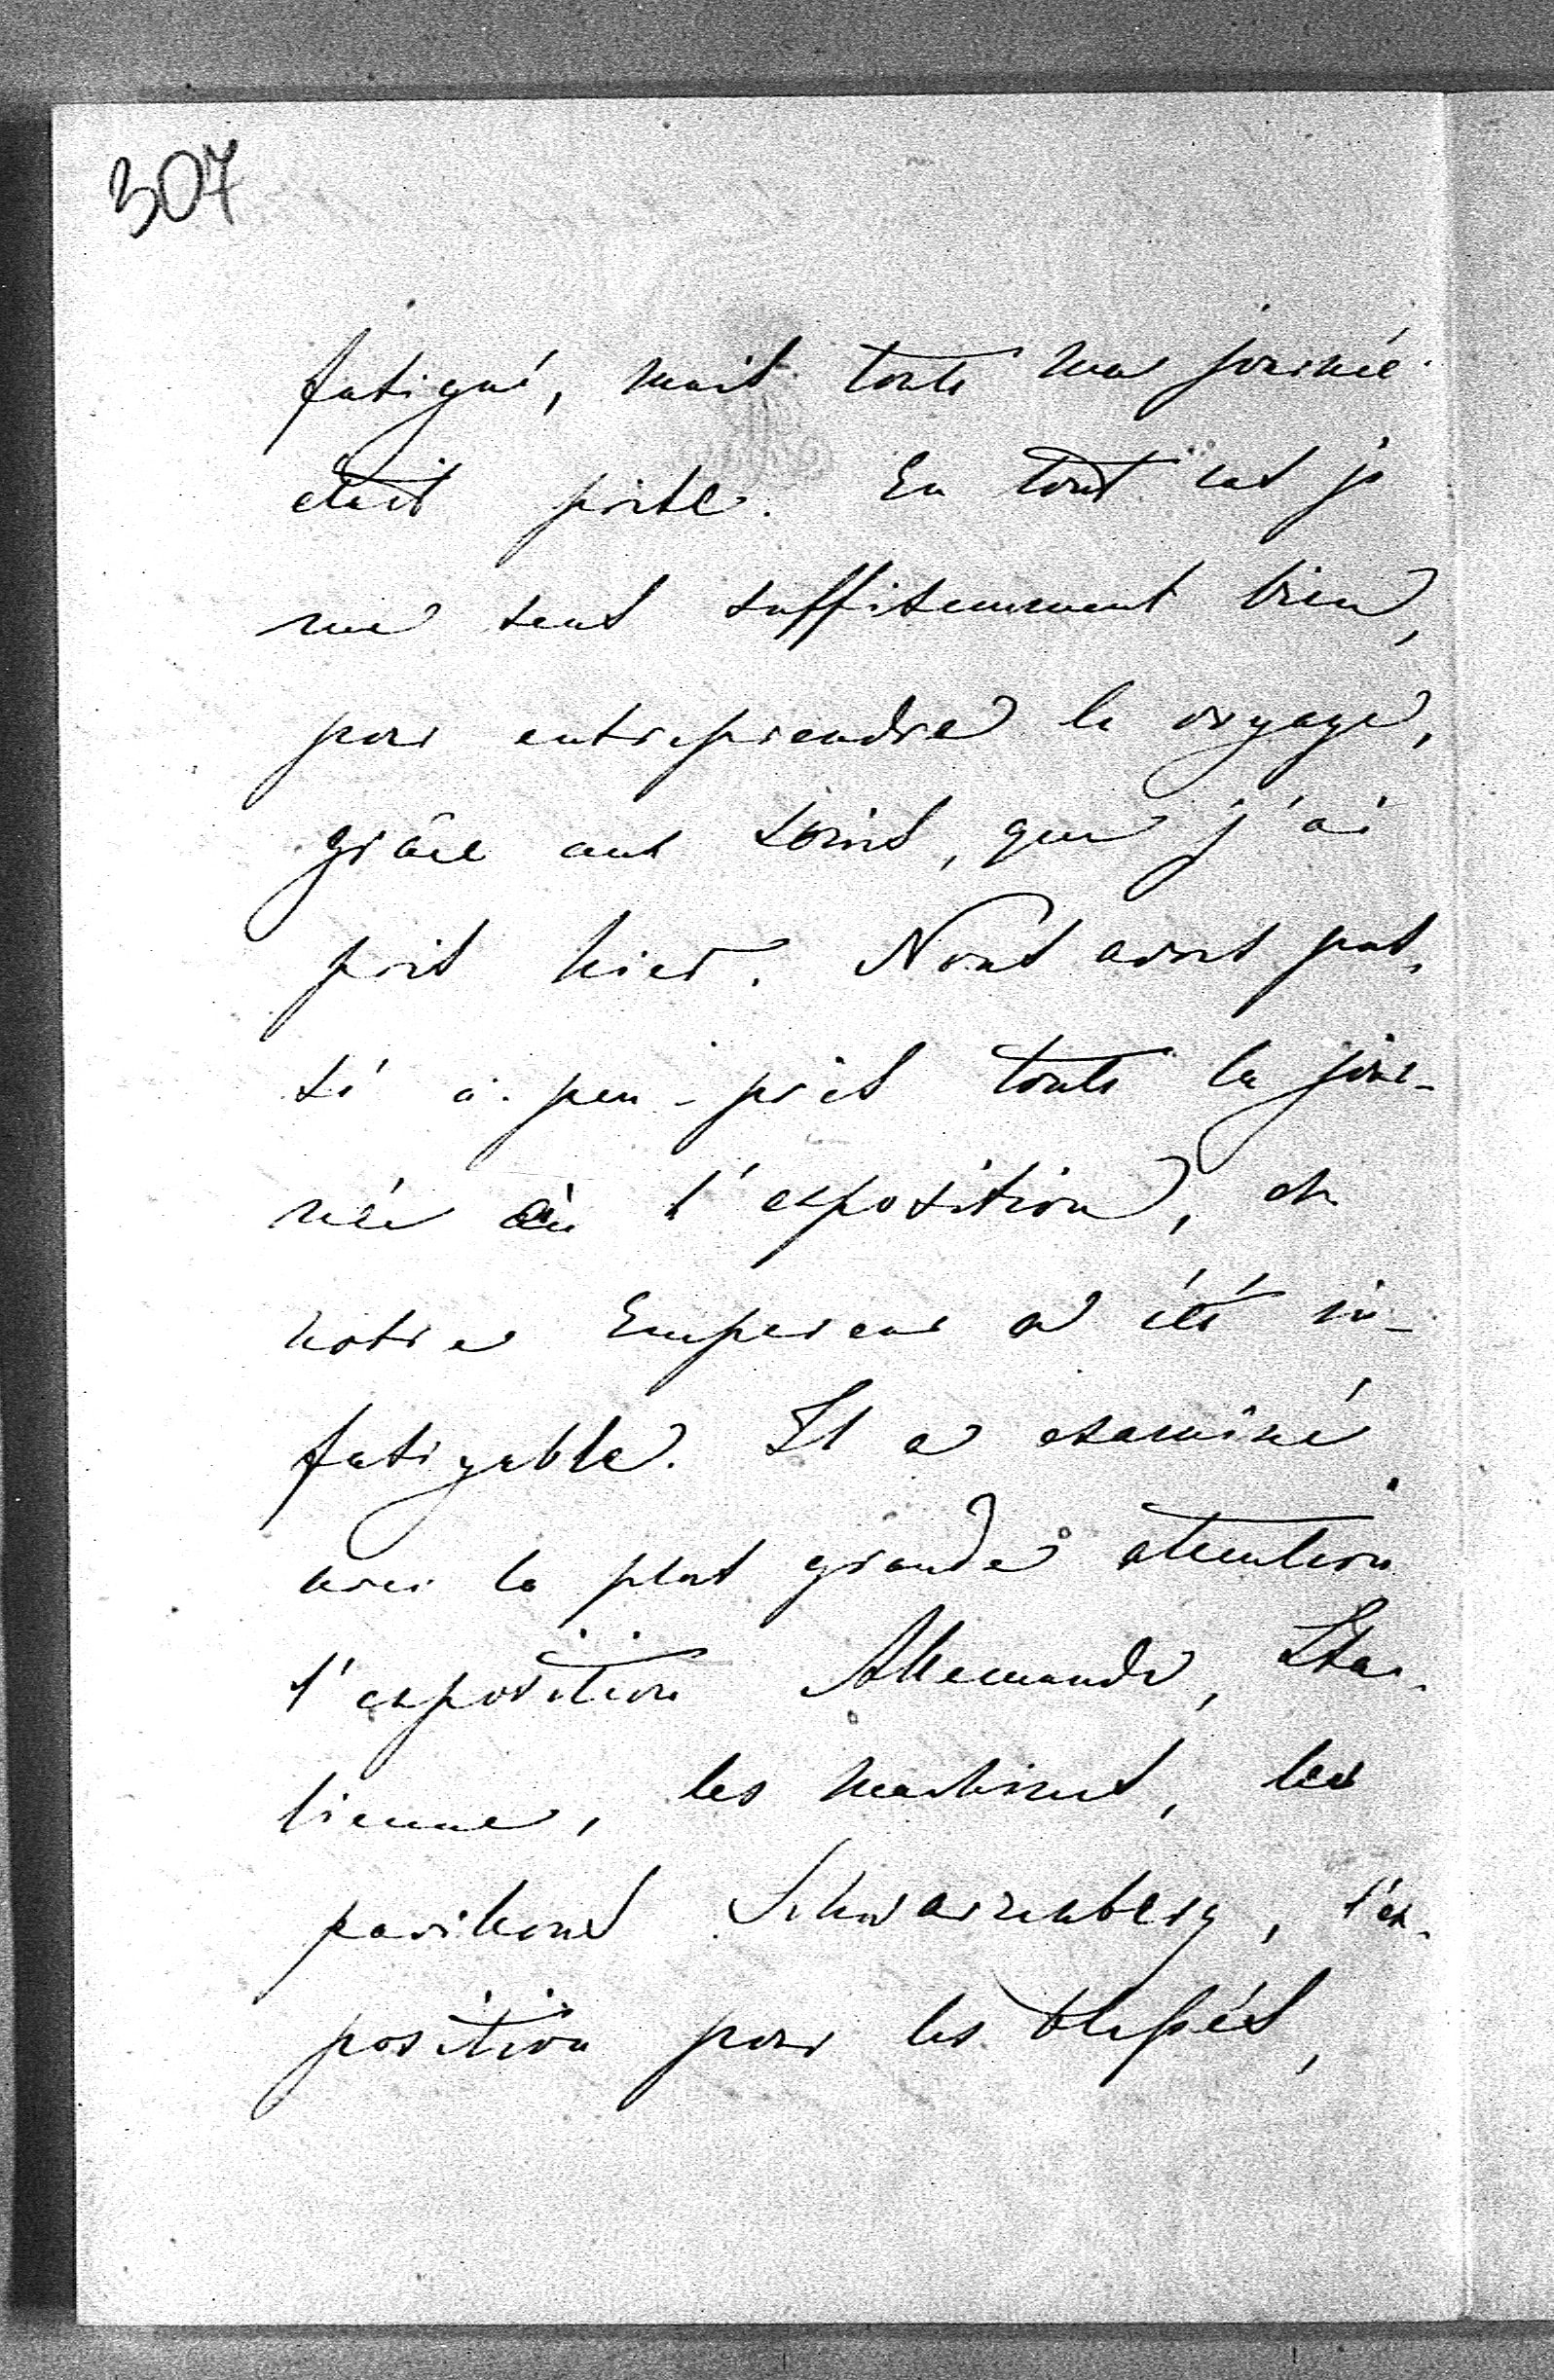 307
fatigué, mais toute ma journée
était prise. En tout cas je
me sens suffisemment bien,
pour entreprendre le voyage,
grâce aux soins, que j'ai
pris hier. Nous avons pas-
sé à-peu-près toute la jour-
née à l'exposition, et
notre Empereur a été in-
fatigable. Il a examiné
avec la plus grande attention
l'exposition Allemande, Ita-
lienne, les machines, les
pavillons Schwarzenberg, l'ex-
position pour les blessés,